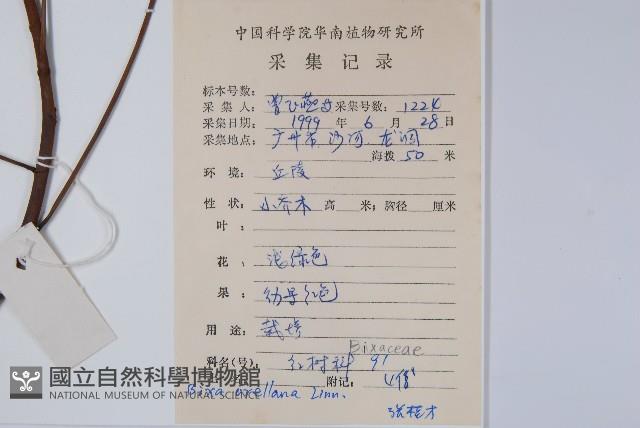 中国科学院华南植物研究所
采集记录
标本号数：
采集人：曾飞燕 采集号数：1224
采集日期：1999 年 6 月 28 日
采集地点：广州市沙河 龙洞
海拨 50 米
环境：丘陵
性状：小乔木 高 米；胸径 厘米
叶：
花：浅绿色
果：幼果红色
用途：栽培
Bixaceae
科名(号)： 红树科 91
附记：4份
Bixa orellana Linn.
张桂才
國立自然科學博物館
NATIONAL MUSEUM OF NATURAL SCIENCE